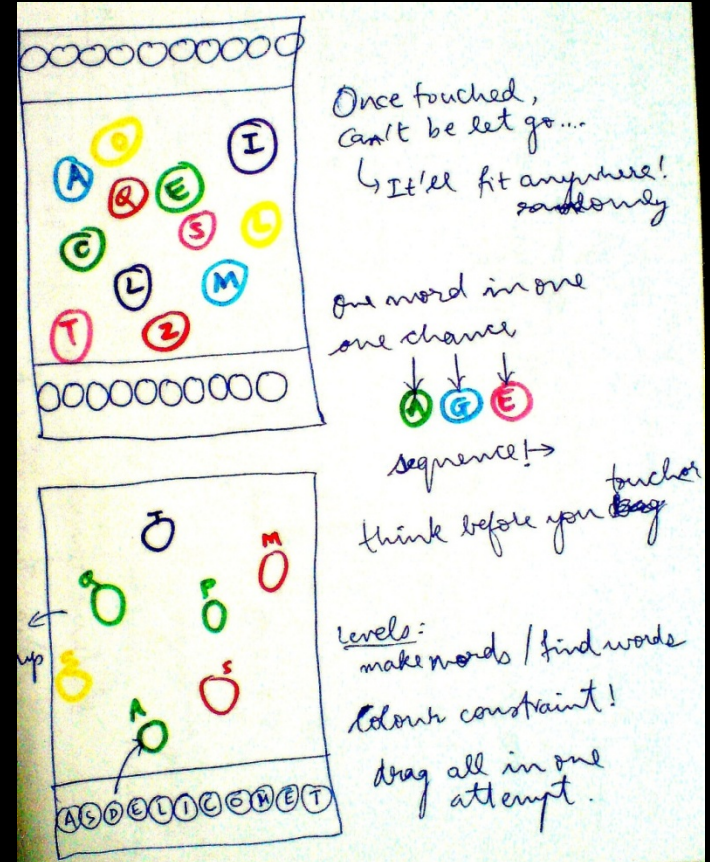 O
I
A
Q
E
S
L
C
L
M
T
Z
Once touched,
can't be let go....
↳ It'll fit anywhere!
randomly
one word in one
one chance
A G E
sequence! →
touch or
think before you drag
I
M
Q
P
up
S
S
A
A S D E L I C O M E T
Levels:
make words / find words
Colour constraint!
drag all in one
attempt.